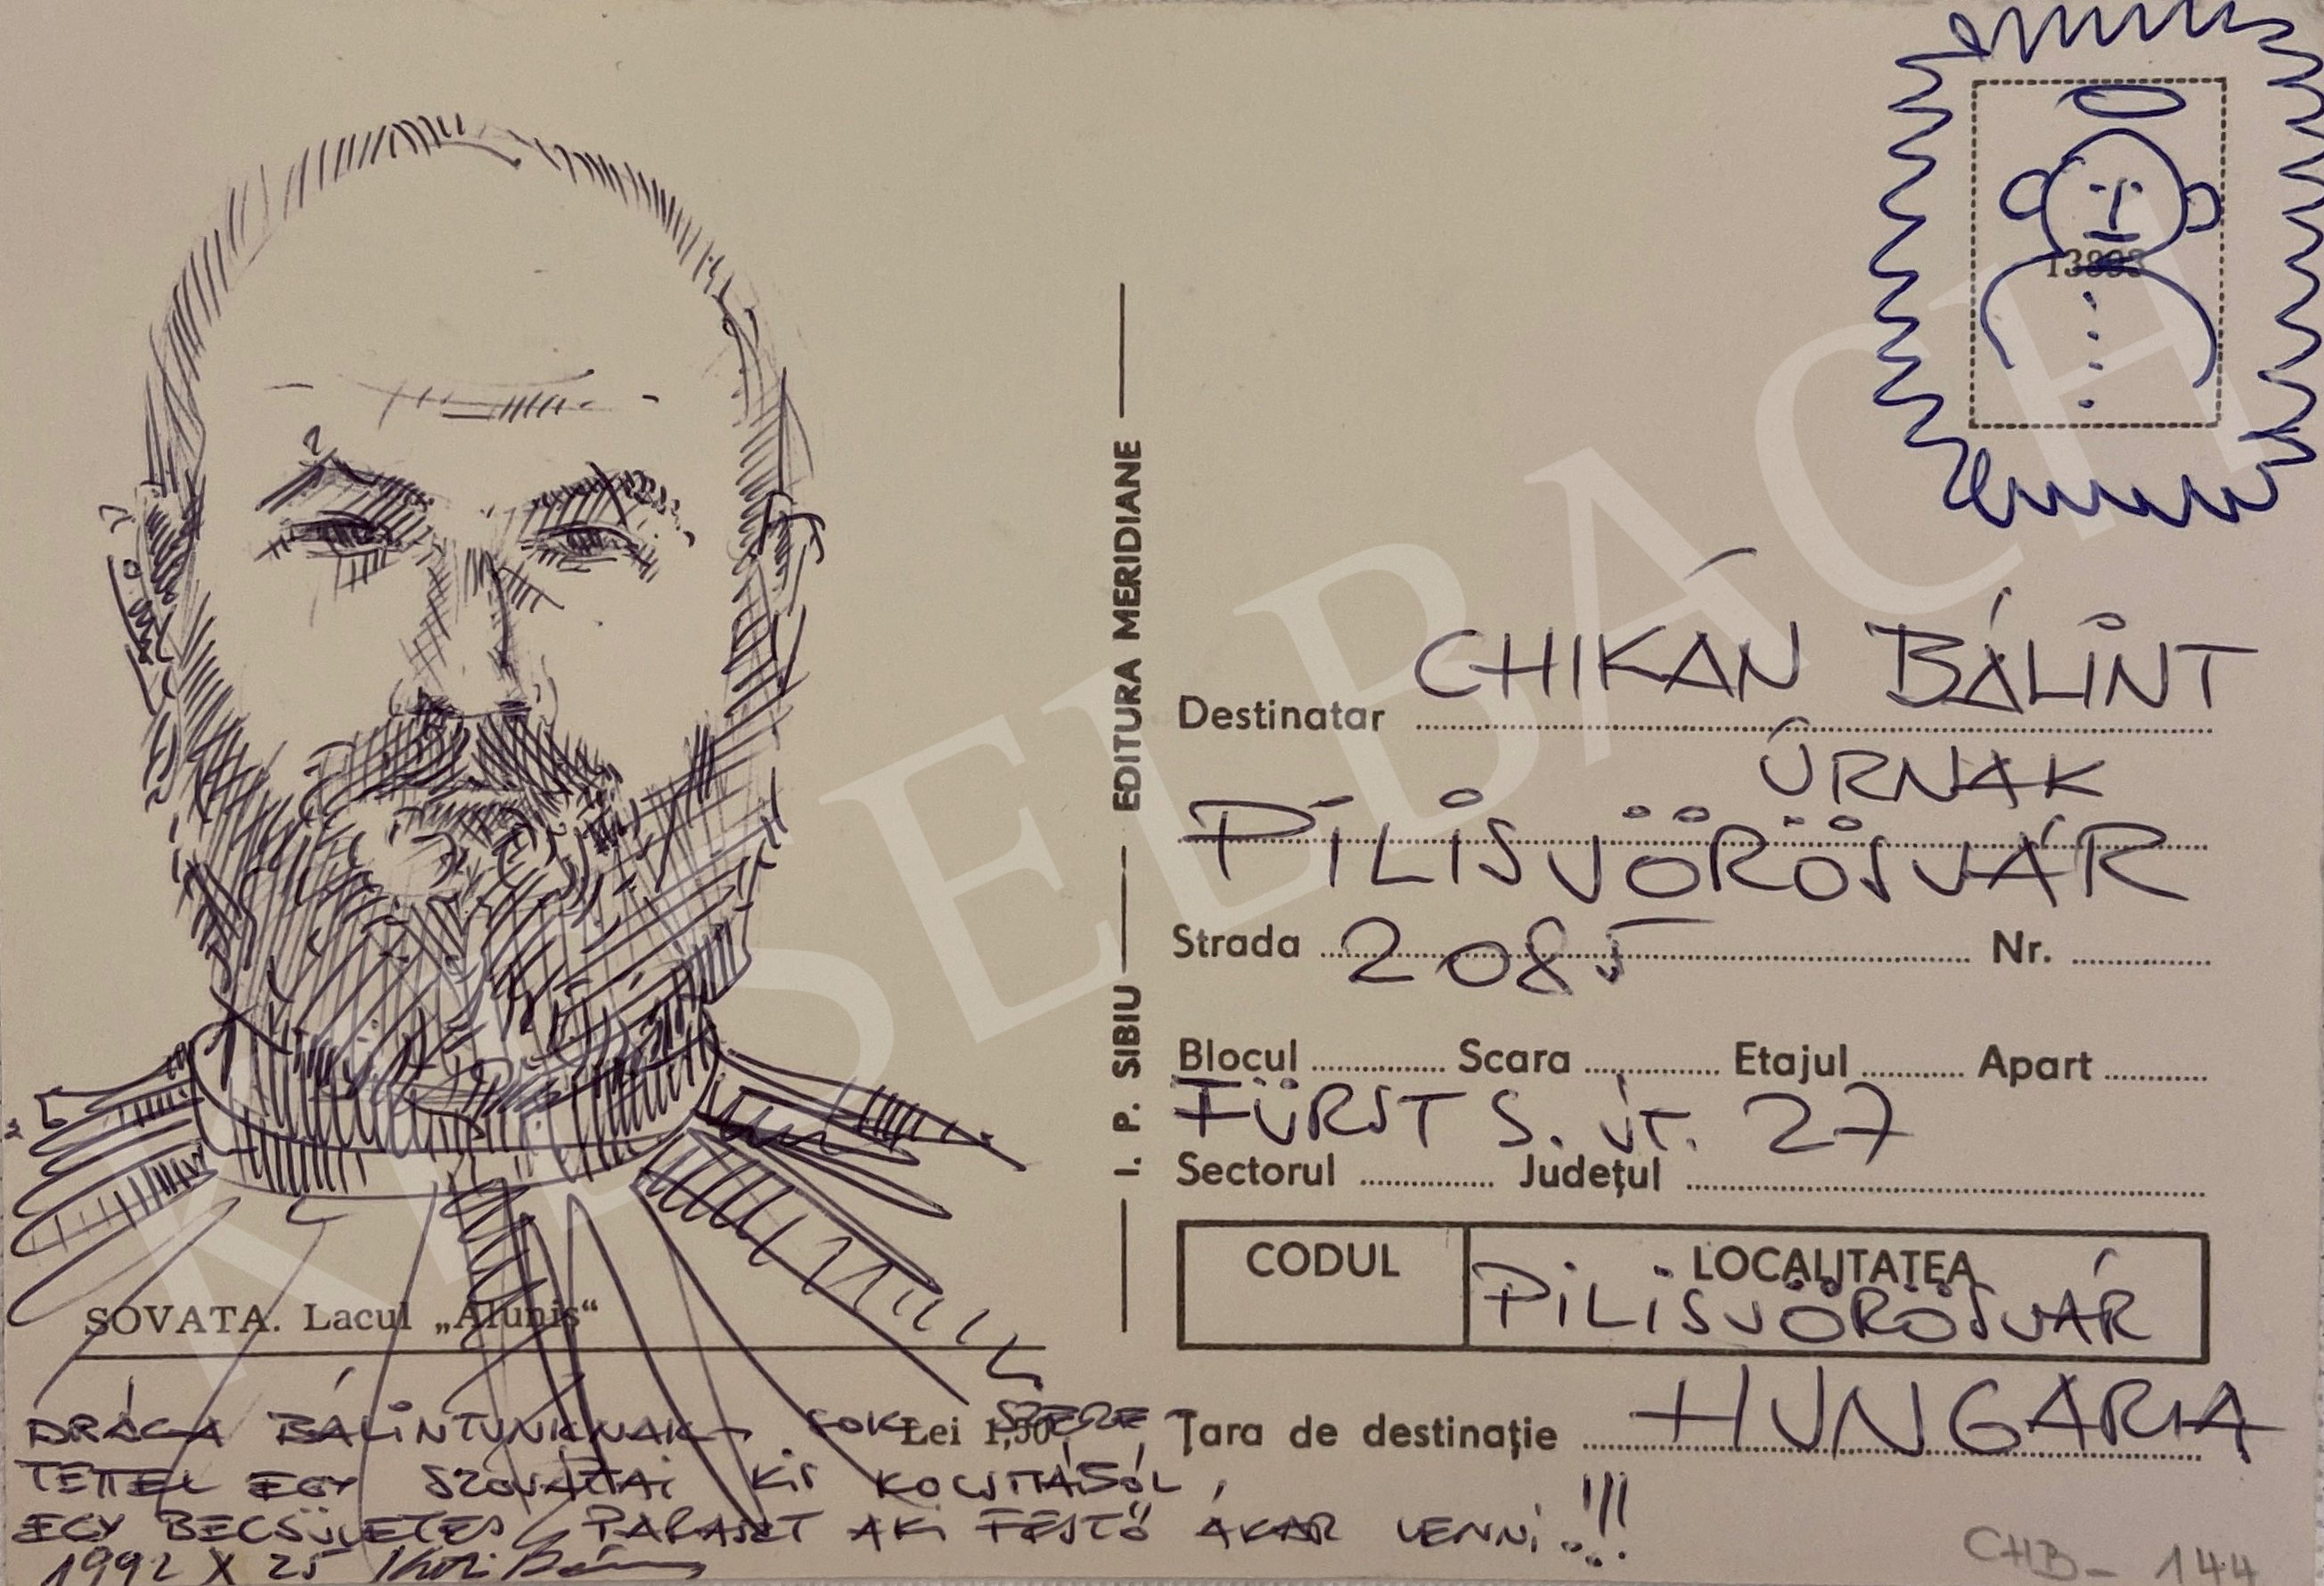 13893
EDITURA MERIDIANE
I. P. SIBIU
CHIKÁN BÁLINT
Destinatar
ÚRNAK
PILISVÖRÖSVÁR
Strada 2085 Nr.
Blocul Scara Etajul Apart
FÜRST S. ÚT. 27
Sectorul Județul
CODUL LOCALITATEA
PILISVÖRÖSVÁR
Țara de destinație HUNGARIA
SOVATA. Lacul „Aluniș“
Lei 1,50
DRÁGA BÁLINTUNKNAK SOK SZERE
TETTEL EGY SZOVÁTAI KIS KOCSMÁBÓL,
EGY BECSÜLETES PARASZT AKI FESTŐ AKAR LENNI..!!!
1992 X 25
CHB - 144
KIESELBACH